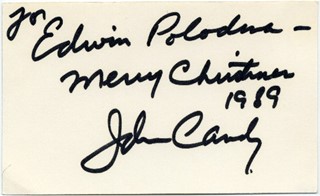 for
Edwin Polodna –
Merry Christmas
1989
John Candy